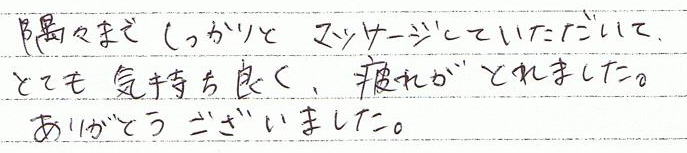 隅々まで しっかりと マッサージしていただいて、
とても 気持ち良く、疲れが とれました。
ありがとう ございました。